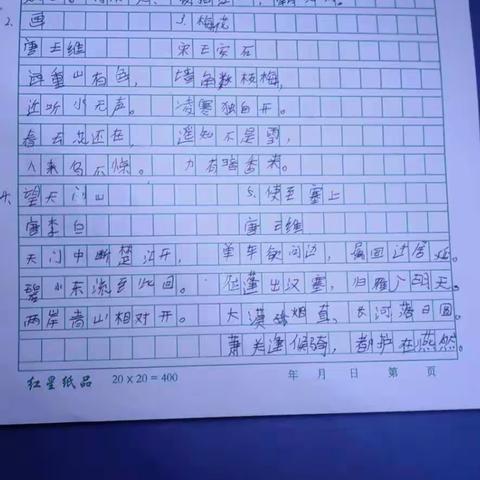 2. 画
唐 王维
远望山有色,
近听水无声。
春去花还在,
人来鸟不惊。
3. 梅花
宋 王安石
墙角数枝梅,
凌寒独自开。
遥知不是雪,
为有暗香来。
4. 望天门山
唐 李白
天门中断楚江开,
碧水东流至此回。
两岸青山相对开。
5. 使至塞上
唐 王维
单车欲问边,属国过居延。
征蓬出汉塞,归雁入胡天。
大漠孤烟直,长河落日圆。
萧关逢候骑,都护在燕然。
红星纸品 20×20=400 年 月 日 第 页